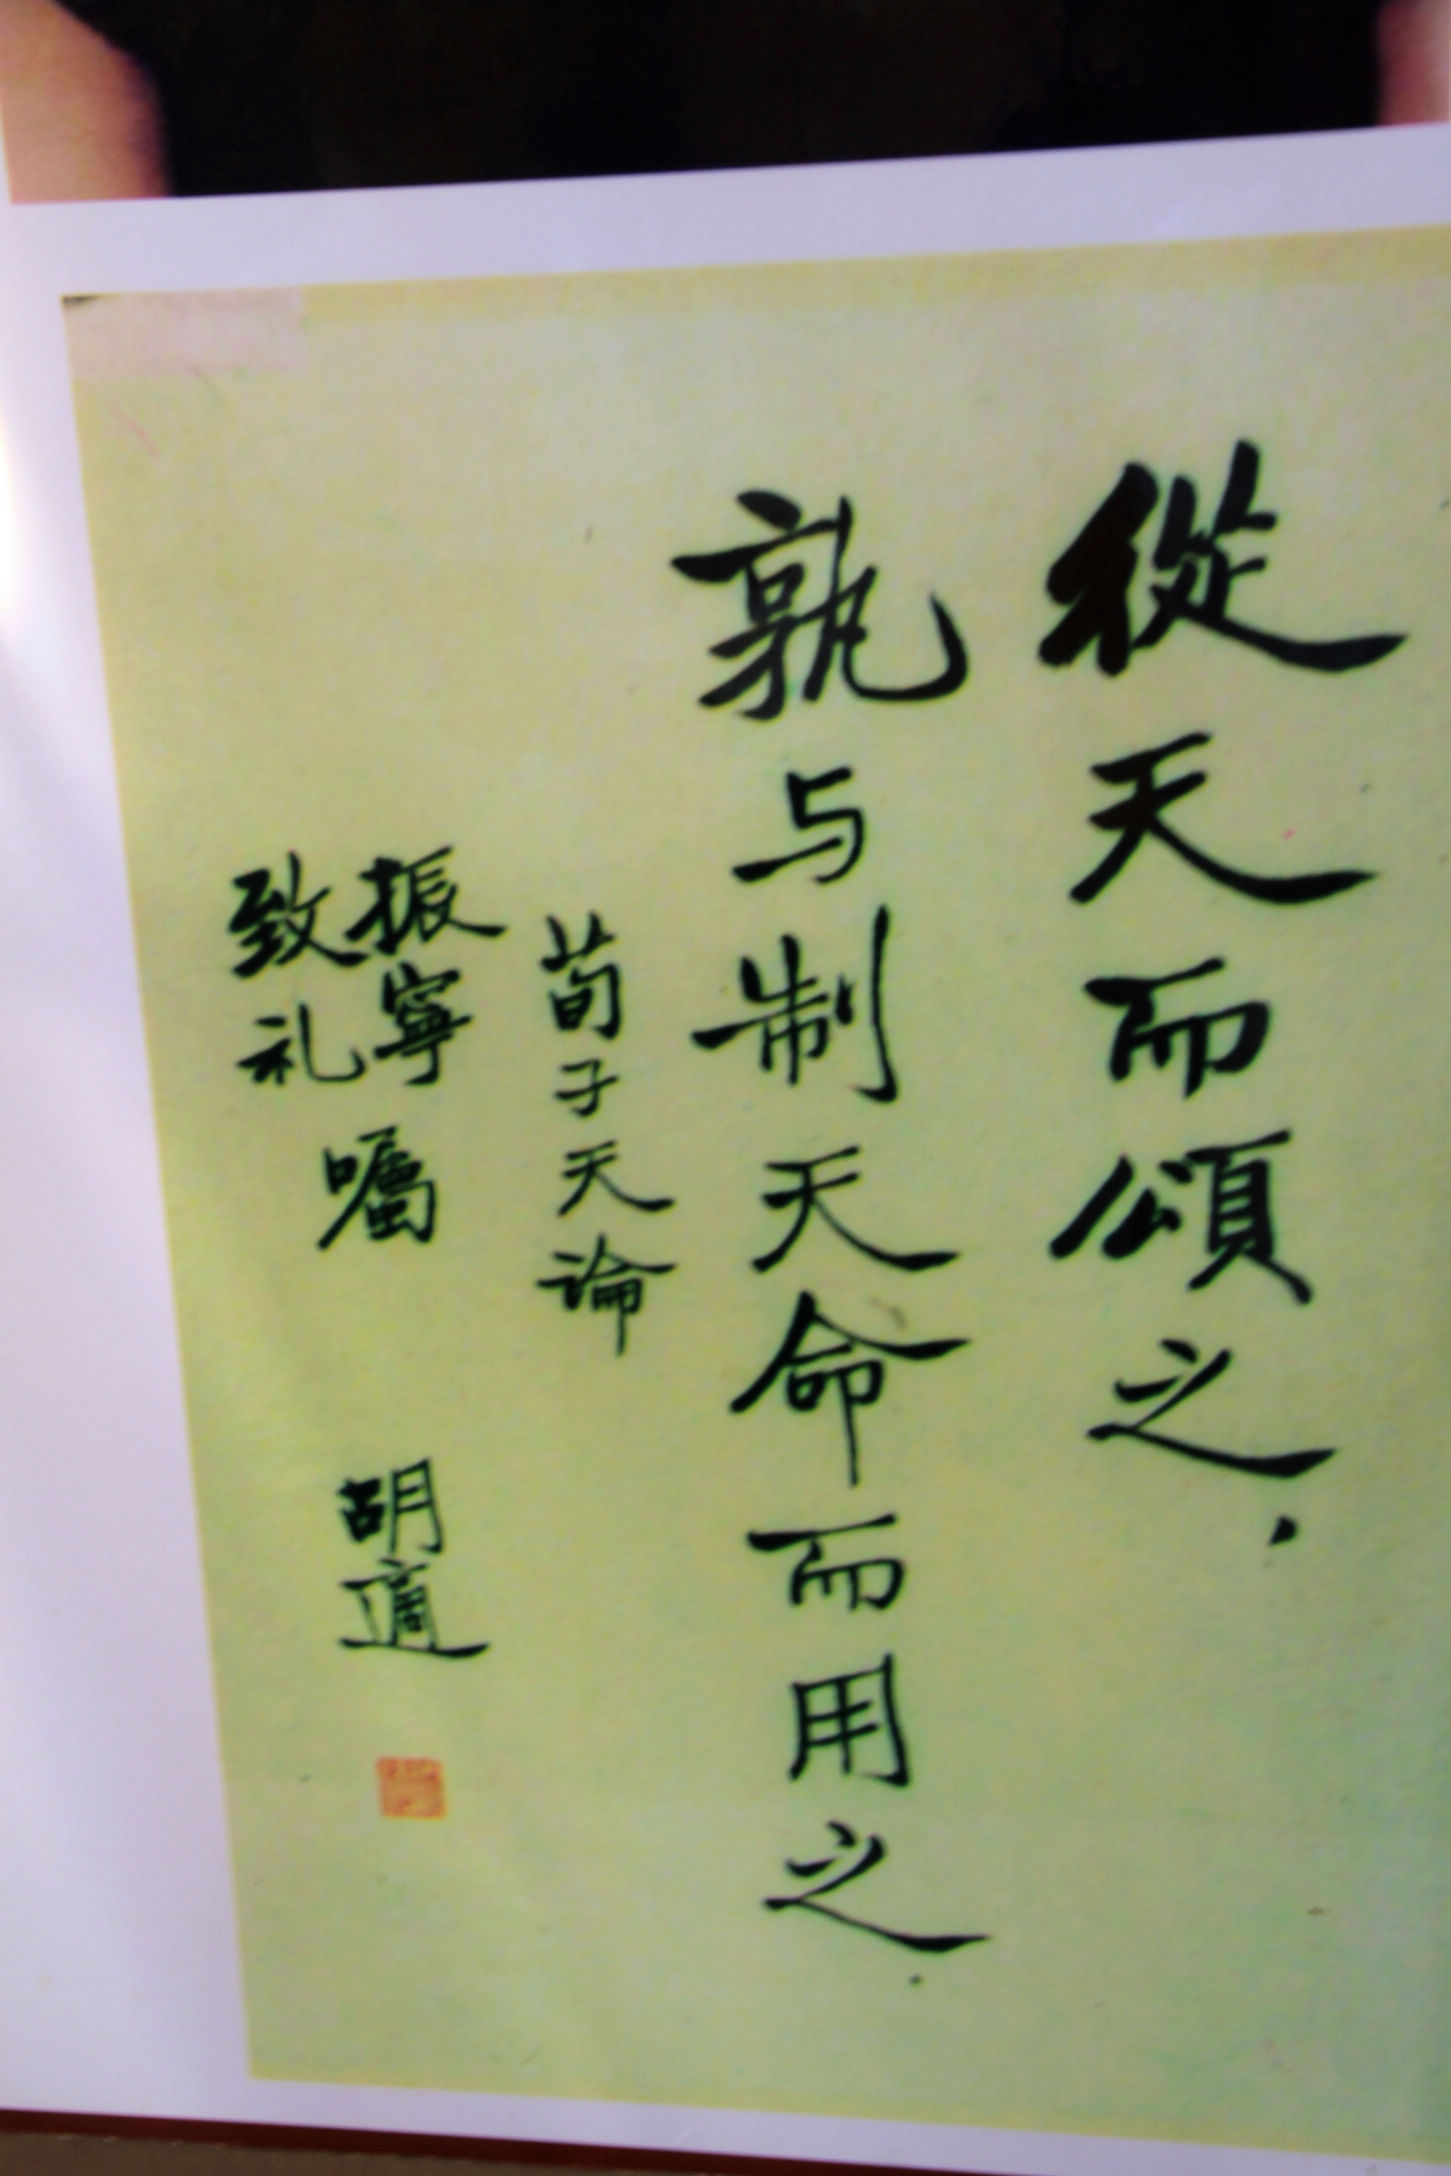 從天而頌之．
孰与制天命而用之．
荀子天論
振寧
致礼
嘱
胡適